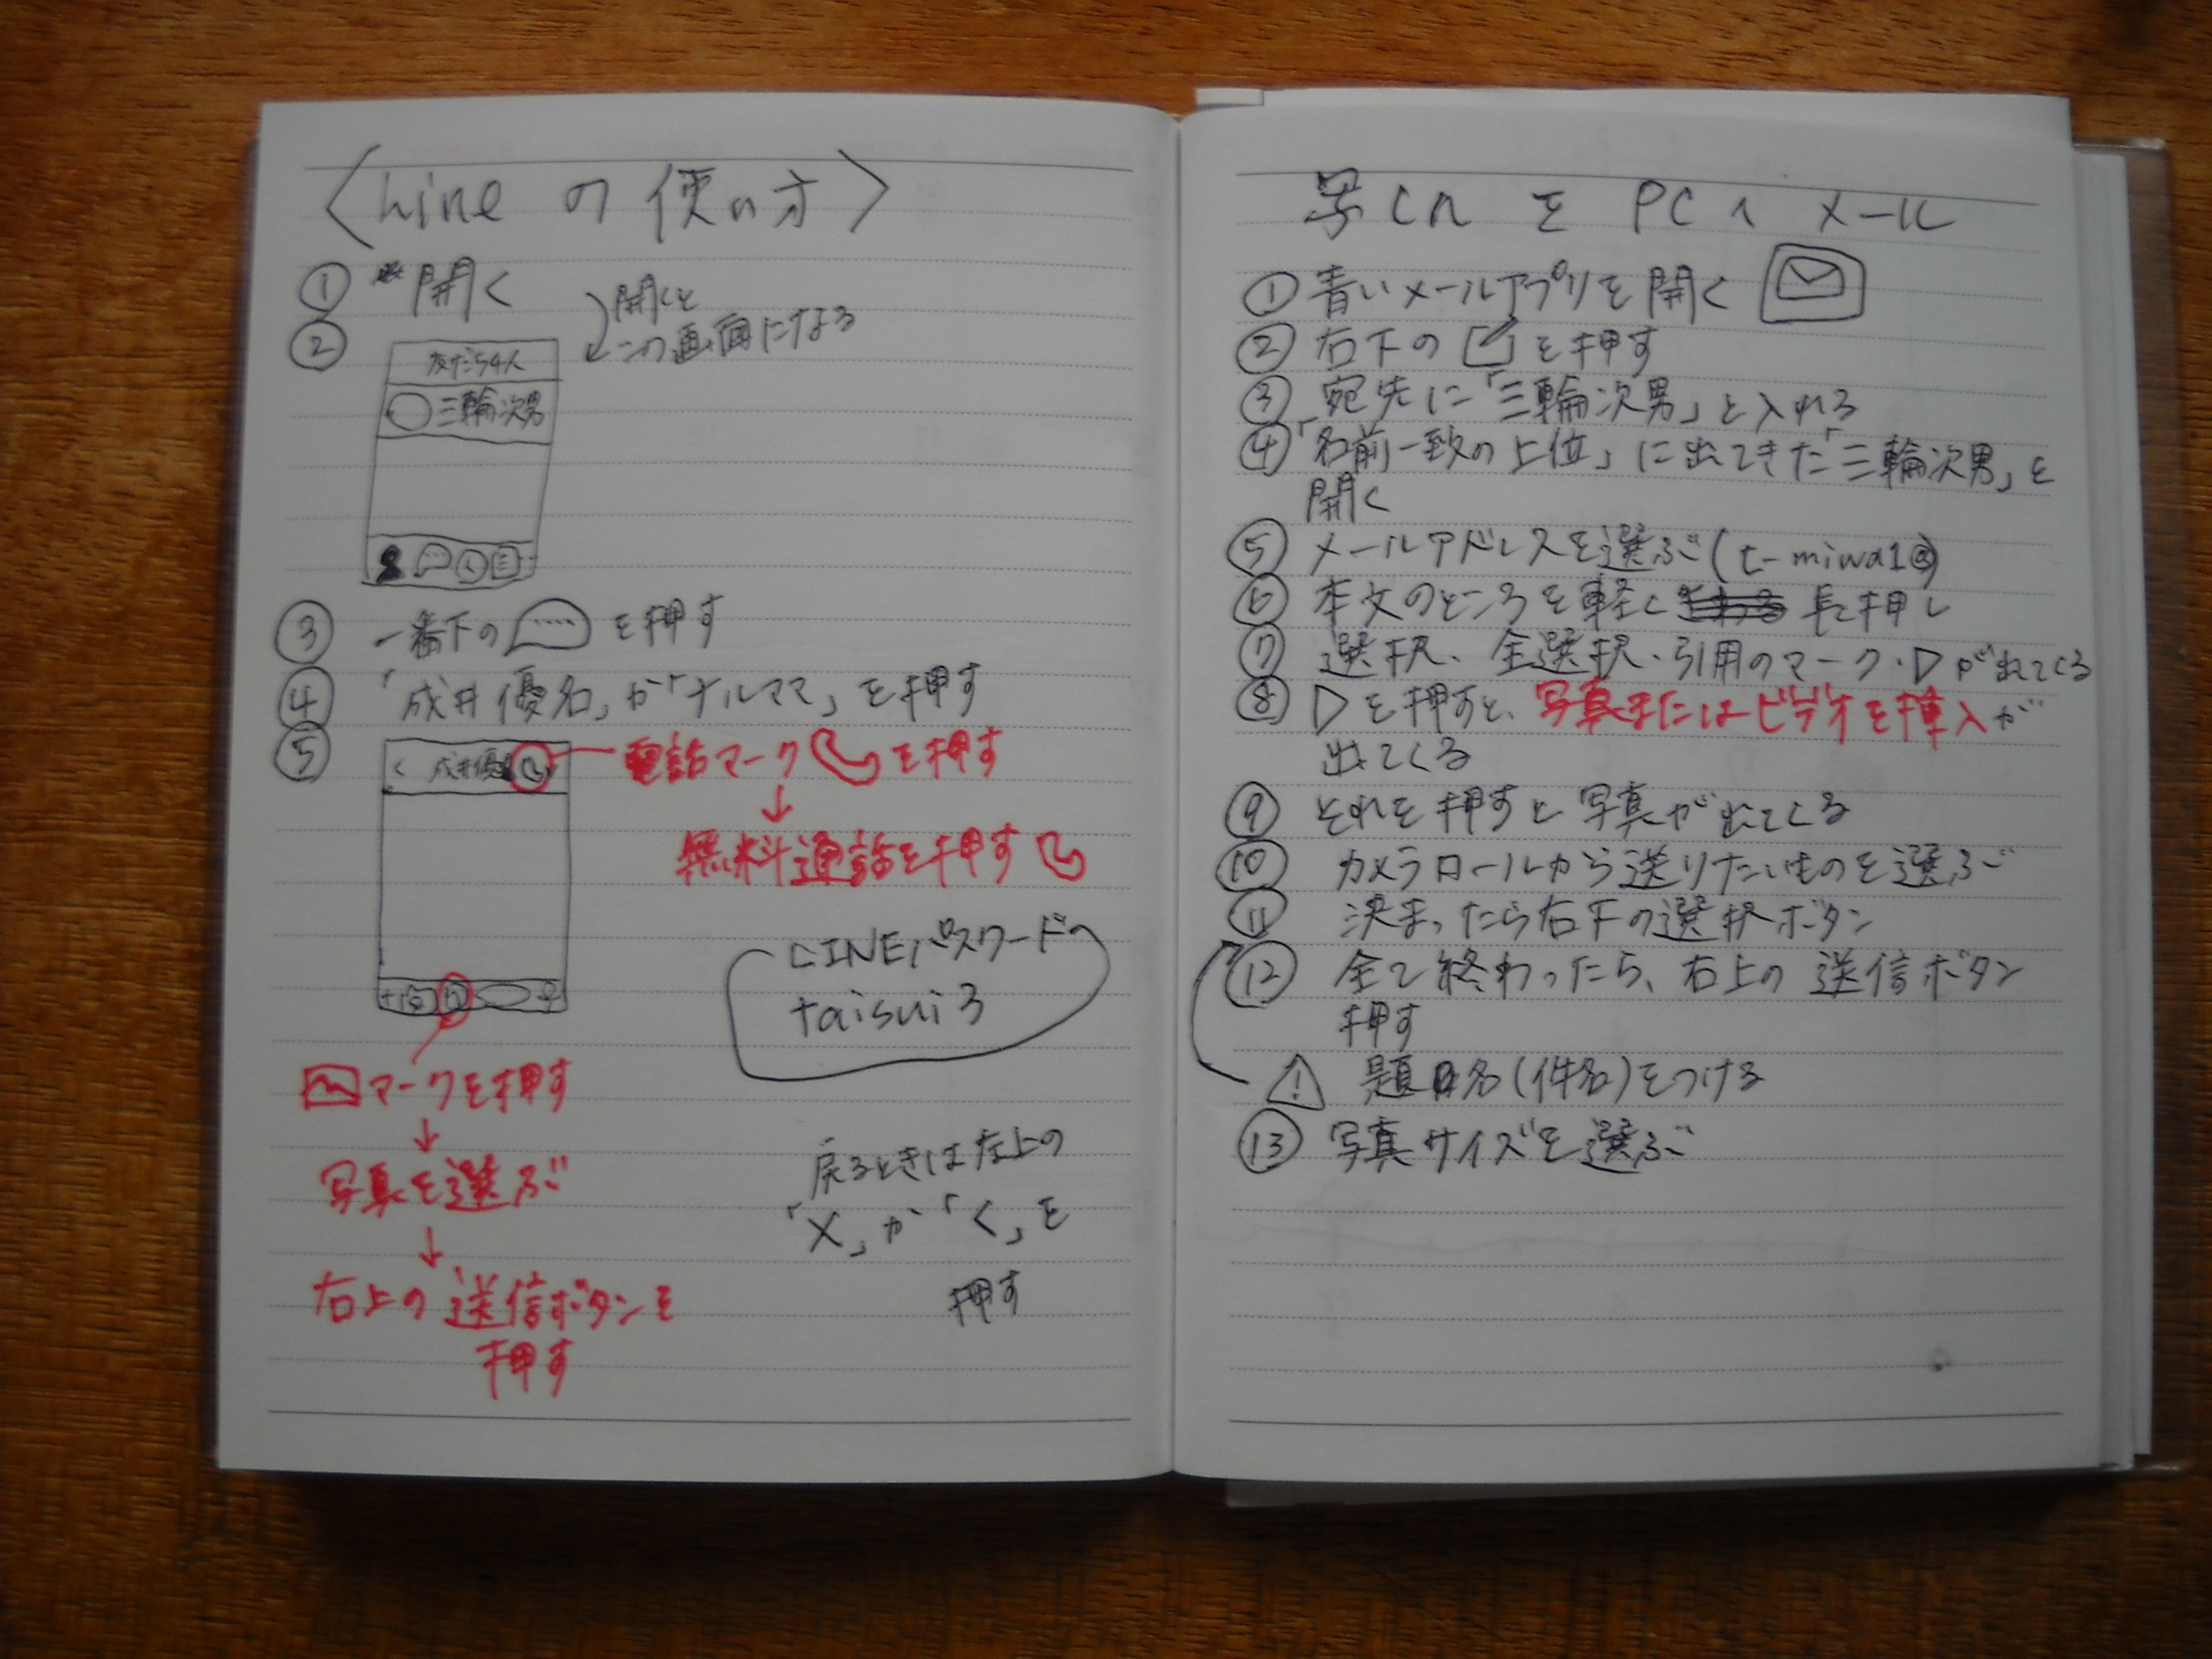 〈Lineの使い方〉
① 開く
開くと
この画面になる
②
友だち4人
三輪次男
③ 一番下の を押す
④ 「成井優名」か「ナルママ」を押す
⑤
< 成井優
電話マーク を押す
↓
無料通話を押す
LINEパスワード
taisui3
マークを押す
↓
写真を選ぶ
↓
右上の送信ボタンを
押す
戻るときは左上の
「×」か「く」を
押す
写しんをPCへメール
① 青いメールアプリを開く
② 右下の を押す
③ 宛先に「三輪次男」と入れる
④ 「名前一致の上位」に出てきた「三輪次男」を
開く
⑤ メールアドレスを選ぶ(t-miwa1@)
⑥ 本文のところを軽く 長押し
⑦ 選択、全選択・引用のマーク・▷が出てくる
⑧ ▷を押すと、写真またはビデオを挿入が
出てくる
⑨ それを押すと写真が出てくる
⑩ カメラロールから送りたいものを選ぶ
⑪ 決まったら右下の選択ボタン
⑫ 全て終わったら、右上の送信ボタン
押す
! 題名(件名)をつける
⑬ 写真サイズを選ぶ